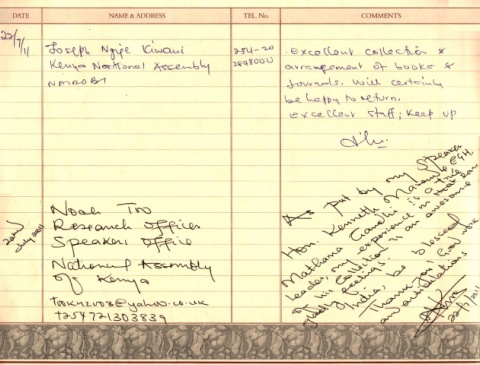 DATE NAME & ADDRESS TEL. No. COMMENTS
22/7/11
Joseph Ngije Kiwani
Kenya National Assembly
NAIROBI
254-20
Excellent collection &
arrangement of books &
Journals. Will certainly
be happy to return.
Excellent staff; Keep up
Noah Too
Research Officer
Speakers office
National Assembly
of Kenya
tookn2003@yahoo.co.uk
+254721303839
20th
July 2011
As put by my Speaker
Hon. Kenneth Marende EGH,
Mathama Gandhi is a true
Leader, my experience in
of his Collection is an awesome
feeling.
of India, be blessed
Thank you! God
22/7/2011